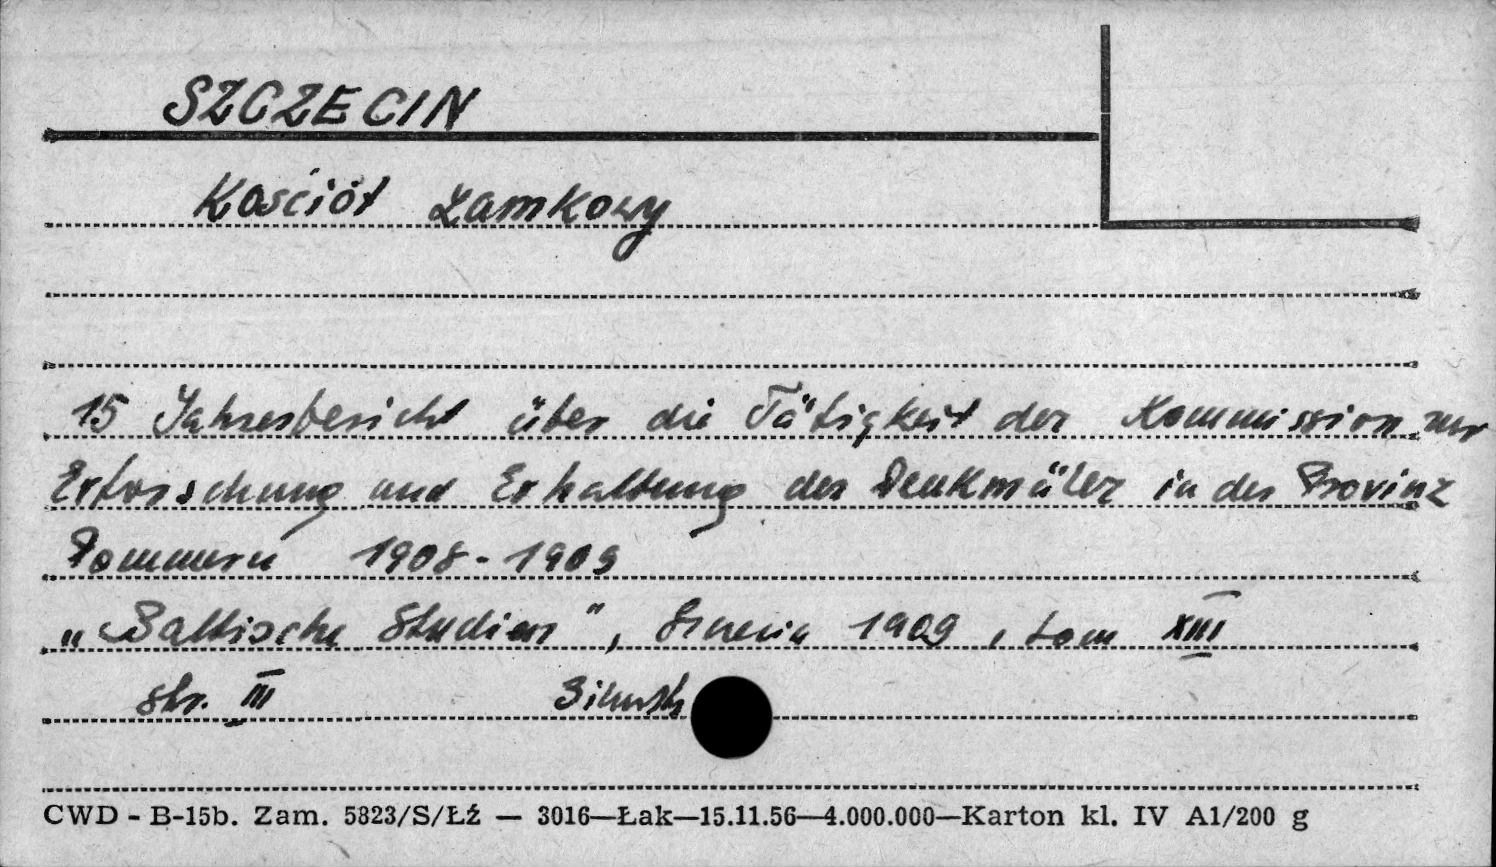 SZCZECIN
Kościół zamkowy
15 Jahresbericht über die Tätigkeit der Kommission zur
Erforschung und Erhaltung der Denkmäler in der Provinz
Pommern 1908-1909
„Baltische Studien", Szczecin 1909, tom XIII
str. III
CWD - B-15b. Zam. 5823/S/Łź — 3016—Łak—15.11.56—4.000.000—Karton kl. IV A1/200 g